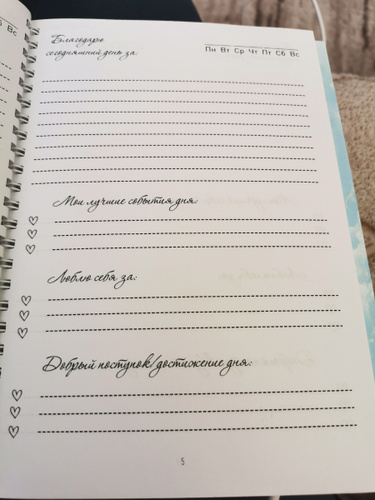 Благодарю
сегодняшний день за:
Пн Вт Ср Чт Пт Сб Вс
Мои лучшие события дня:
Люблю себя за:
Добрый поступок/достижение дня:
5